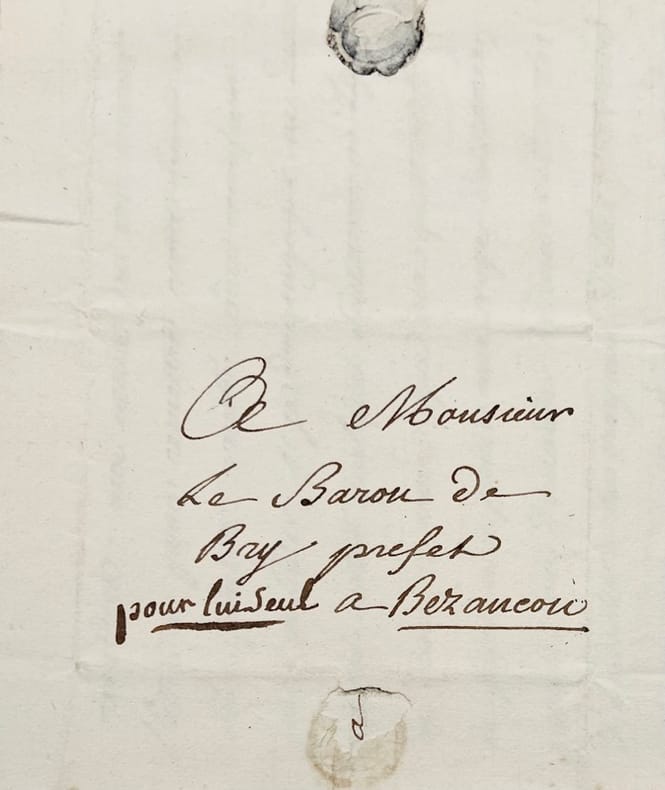 A Monsieur
Le Baron de
Bry prefet
pour lui Seul a Bezancon
a